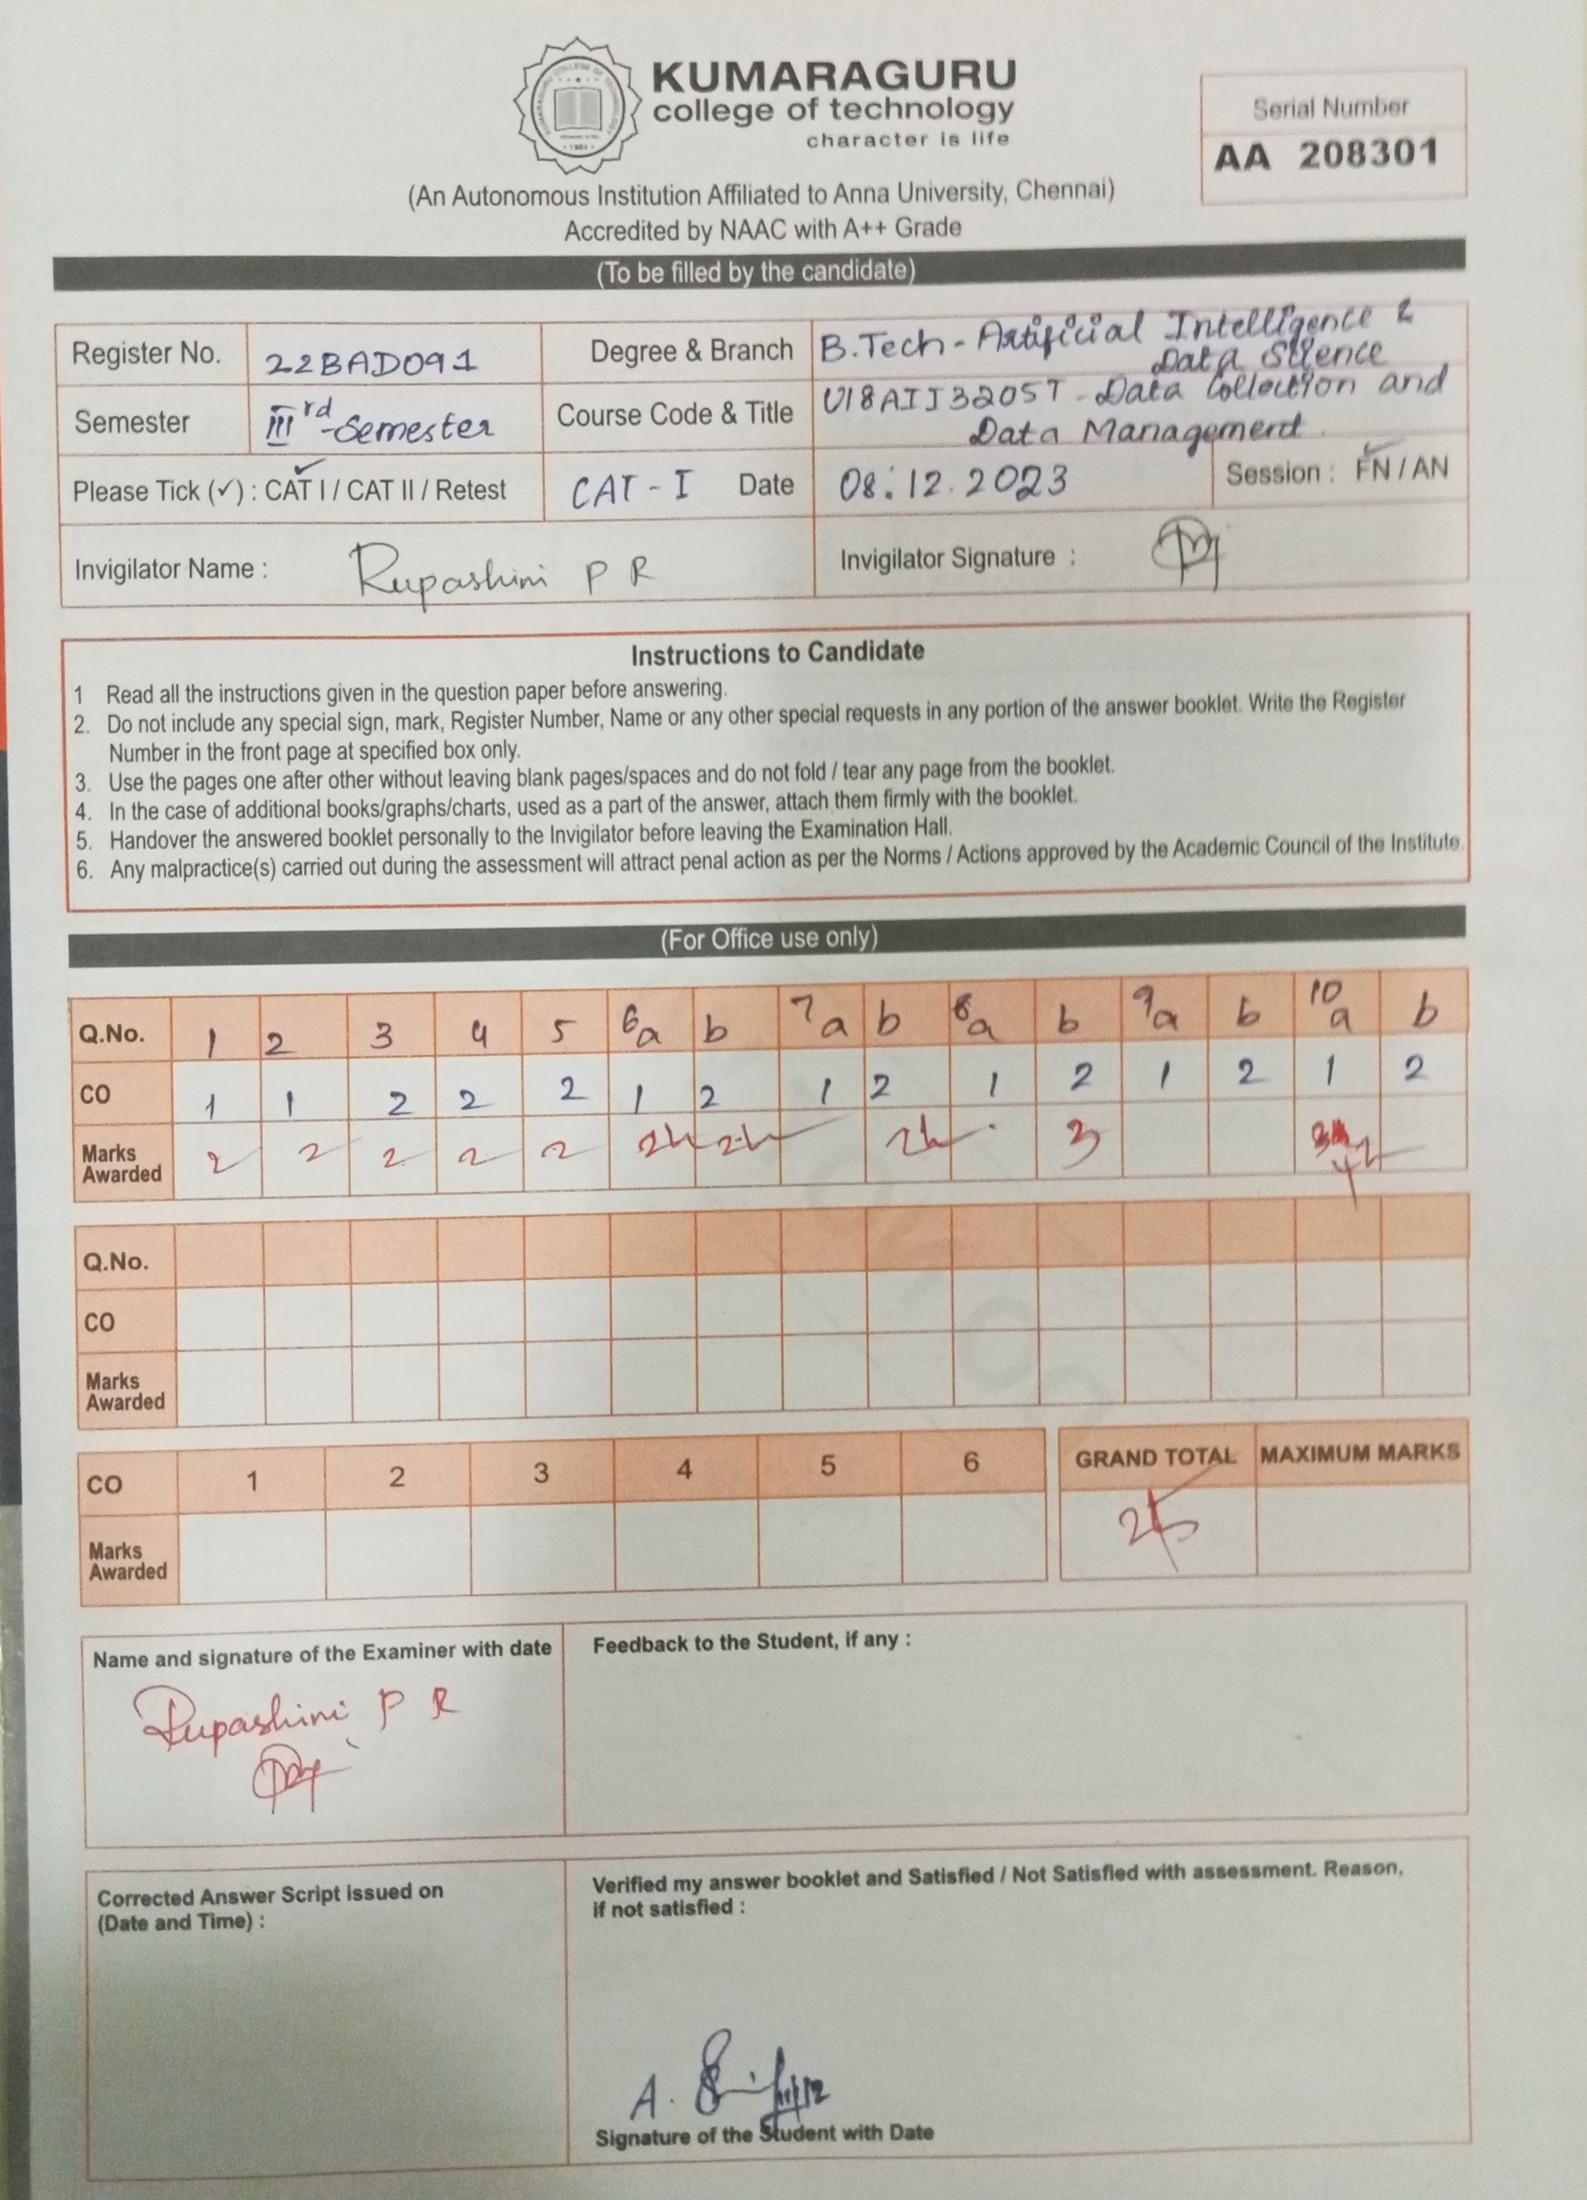 KUMARAGURU
college of technology
character is life
Serial Number
AA 208301
(An Autonomous Institution Affiliated to Anna University, Chennai)
Accredited by NAAC with A++ Grade
(To be filled by the candidate)
Register No. 22BAD091
Degree & Branch B.Tech - Artificial Intelligence &
Data Science
Semester IIIrd Semester
Course Code & Title U18AII3205T - Data Collection and
Data Management.
Please Tick (✓) : CAT I / CAT II / Retest CAT - I Date 08.12.2023 Session : FN / AN
Invigilator Name : Rupashini P R Invigilator Signature :
Instructions to Candidate
1 Read all the instructions given in the question paper before answering.
2. Do not include any special sign, mark, Register Number, Name or any other special requests in any portion of the answer booklet. Write the Register
Number in the front page at specified box only.
3. Use the pages one after other without leaving blank pages/spaces and do not fold / tear any page from the booklet.
4. In the case of additional books/graphs/charts, used as a part of the answer, attach them firmly with the booklet.
5. Handover the answered booklet personally to the Invigilator before leaving the Examination Hall.
6. Any malpractice(s) carried out during the assessment will attract penal action as per the Norms / Actions approved by the Academic Council of the Institute.
(For Office use only)
Q.No. 1 2 3 4 5 6a b 7a b 8a b 9a b 10a b
CO 1 1 2 2 2 1 2 1 2 1 2 1 2 1 2
Marks
Awarded 2 2 2 2 2 3
Q.No.
CO
Marks
Awarded
CO 1 2 3 4 5 6
GRAND TOTAL MAXIMUM MARKS
Marks
Awarded
25
Name and signature of the Examiner with date
Rupashini P R
Feedback to the Student, if any :
Corrected Answer Script issued on
(Date and Time) :
Verified my answer booklet and Satisfied / Not Satisfied with assessment. Reason,
if not satisfied :
A.
Signature of the Student with Date